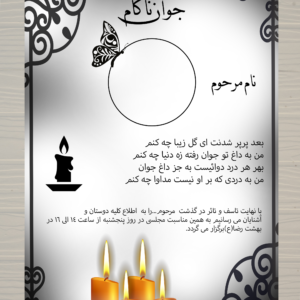 جوان ناکام
نام مرحوم
بعد پرپر شدنت ای گل زیبا چه کنم
من به داغ تو جوان رفته زه دنیا چه کنم
بهر هر درد دوائیست به جز داغ جوان
من به دردی که بر او نیست مداوا چه کنم
با نهایت تاسف و تاثر در گذشت مرحوم...را به اطلاع کلیه دوستان و
آشنایان می رسانیم. به همین مناسبت مجلسی در روز پنجشنبه از ساعت ١٤ الی ١٦ در
بهشت رضا(ع)برگزار می گردد.